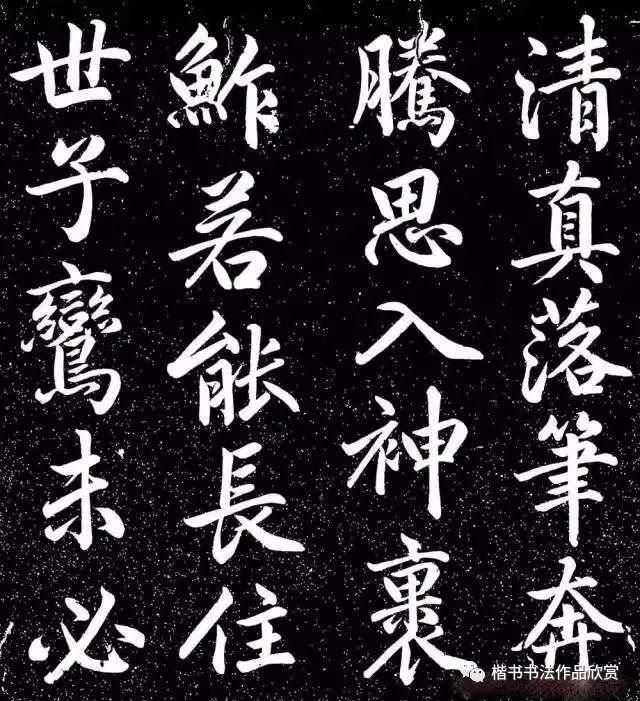 清真落筆奔
騰思入神裏
鮓若能長住
世子鸞未必
楷书书法作品欣赏